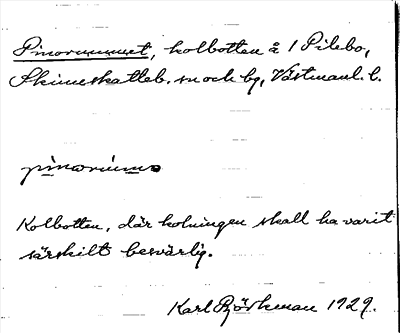 Pinorummet, kolbotten å 1 Pilebo,
Skinnskatteb. sn och bg, Västmanl. l.
pinorummə
Kolbotten, där kolningen skall ha varit
särskilt besvärlig.
Karl Björkman 1929.